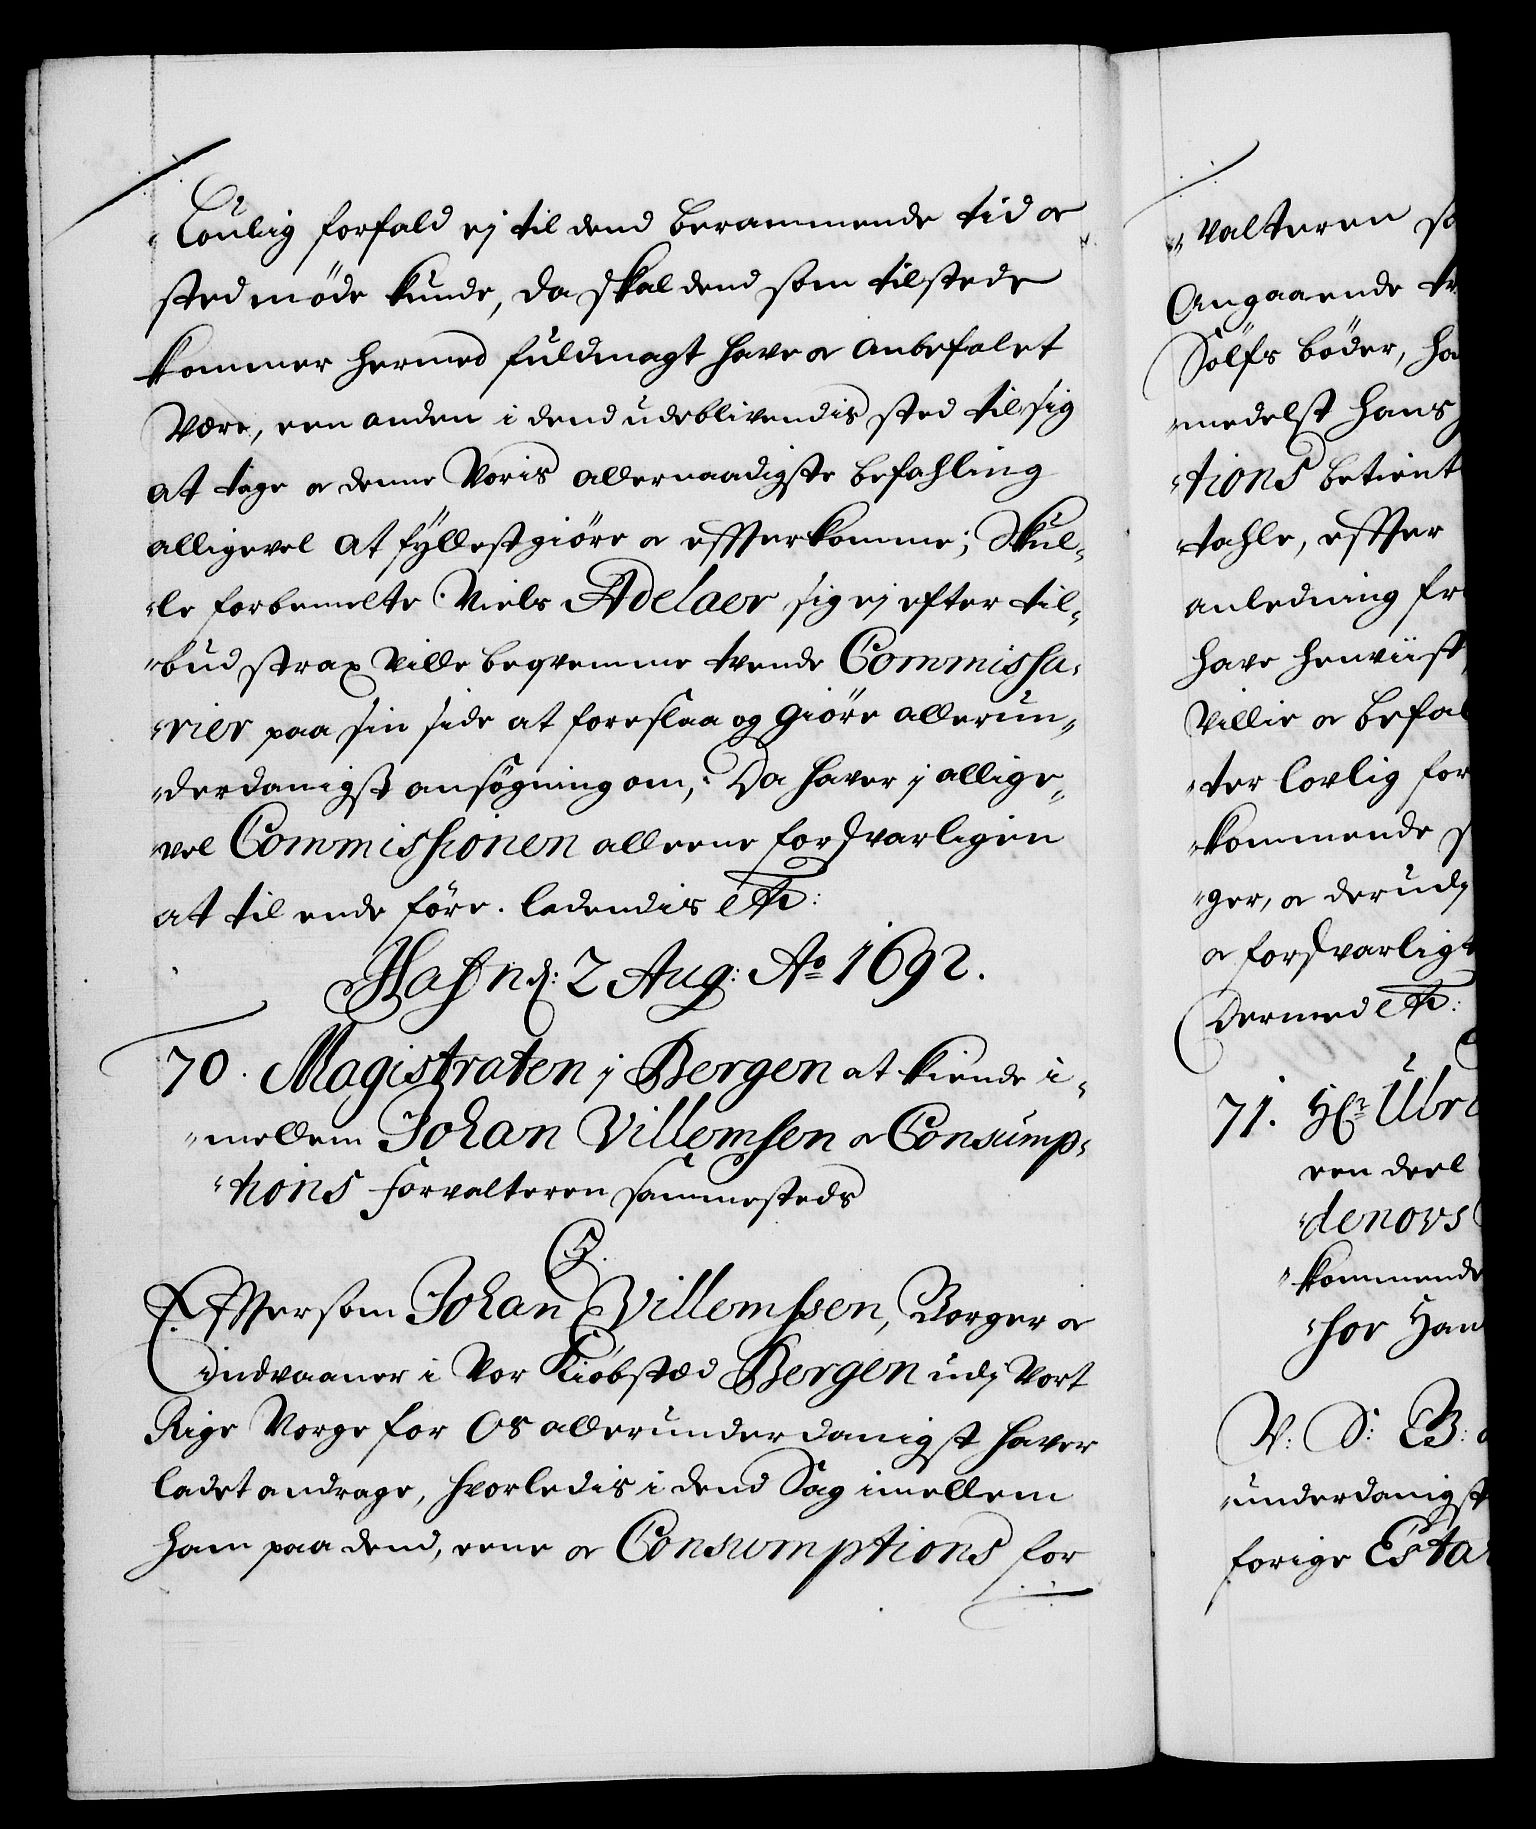 Loulig forfald ej til dend berammende tid og
sted møde kunde, da skal dend som tilstede
kommer hermed fuldmagt have og anbefalet
være, een anden i dend udeblivendis sted til sig
at tage og denne Voris allernaadigste befahling
alligevel at fyllestgiöre og effterkomme; Skul-
le forbemelte Niels Adelaer sig ej efter til-
bud strax ville beqvemme tvende Commissa-
rier paa sin side at foreslaa og giöre allerun-
derdanigst ansögning om, Da haver j allige-
vel Commissionen alleene forsvarligen
at til ende före. ladendis etc:
Hafn d: 2 Aug: Ao 1692.
70. Magistraten j Bergen at kiende i-
mellem Johan Villemsen og Consump-
tions forvalteren sammesteds
C5.
Effter som Johan Villemssen, Borger og
indvaaner i Vor Kiöbsted Bergen udj Vort
Rige Norge for Os allerunderdanigst haver
ladet andrage, hvorledis i dend Sag imellem
ham paa dend, eene og Consumptions for
valteren
Angaaende
Sölfs böder,
medelst hans
tions betient
tahle, effter
anledning
have henviist
Villie og befal
ter lovlig for
kommende
ger, og derudj
og forsvarligt
Dermed etc:
71. Hr. Ulri
een deel
denovs
kommende
for Han
V: S: B:
underdanigst
forige Esta